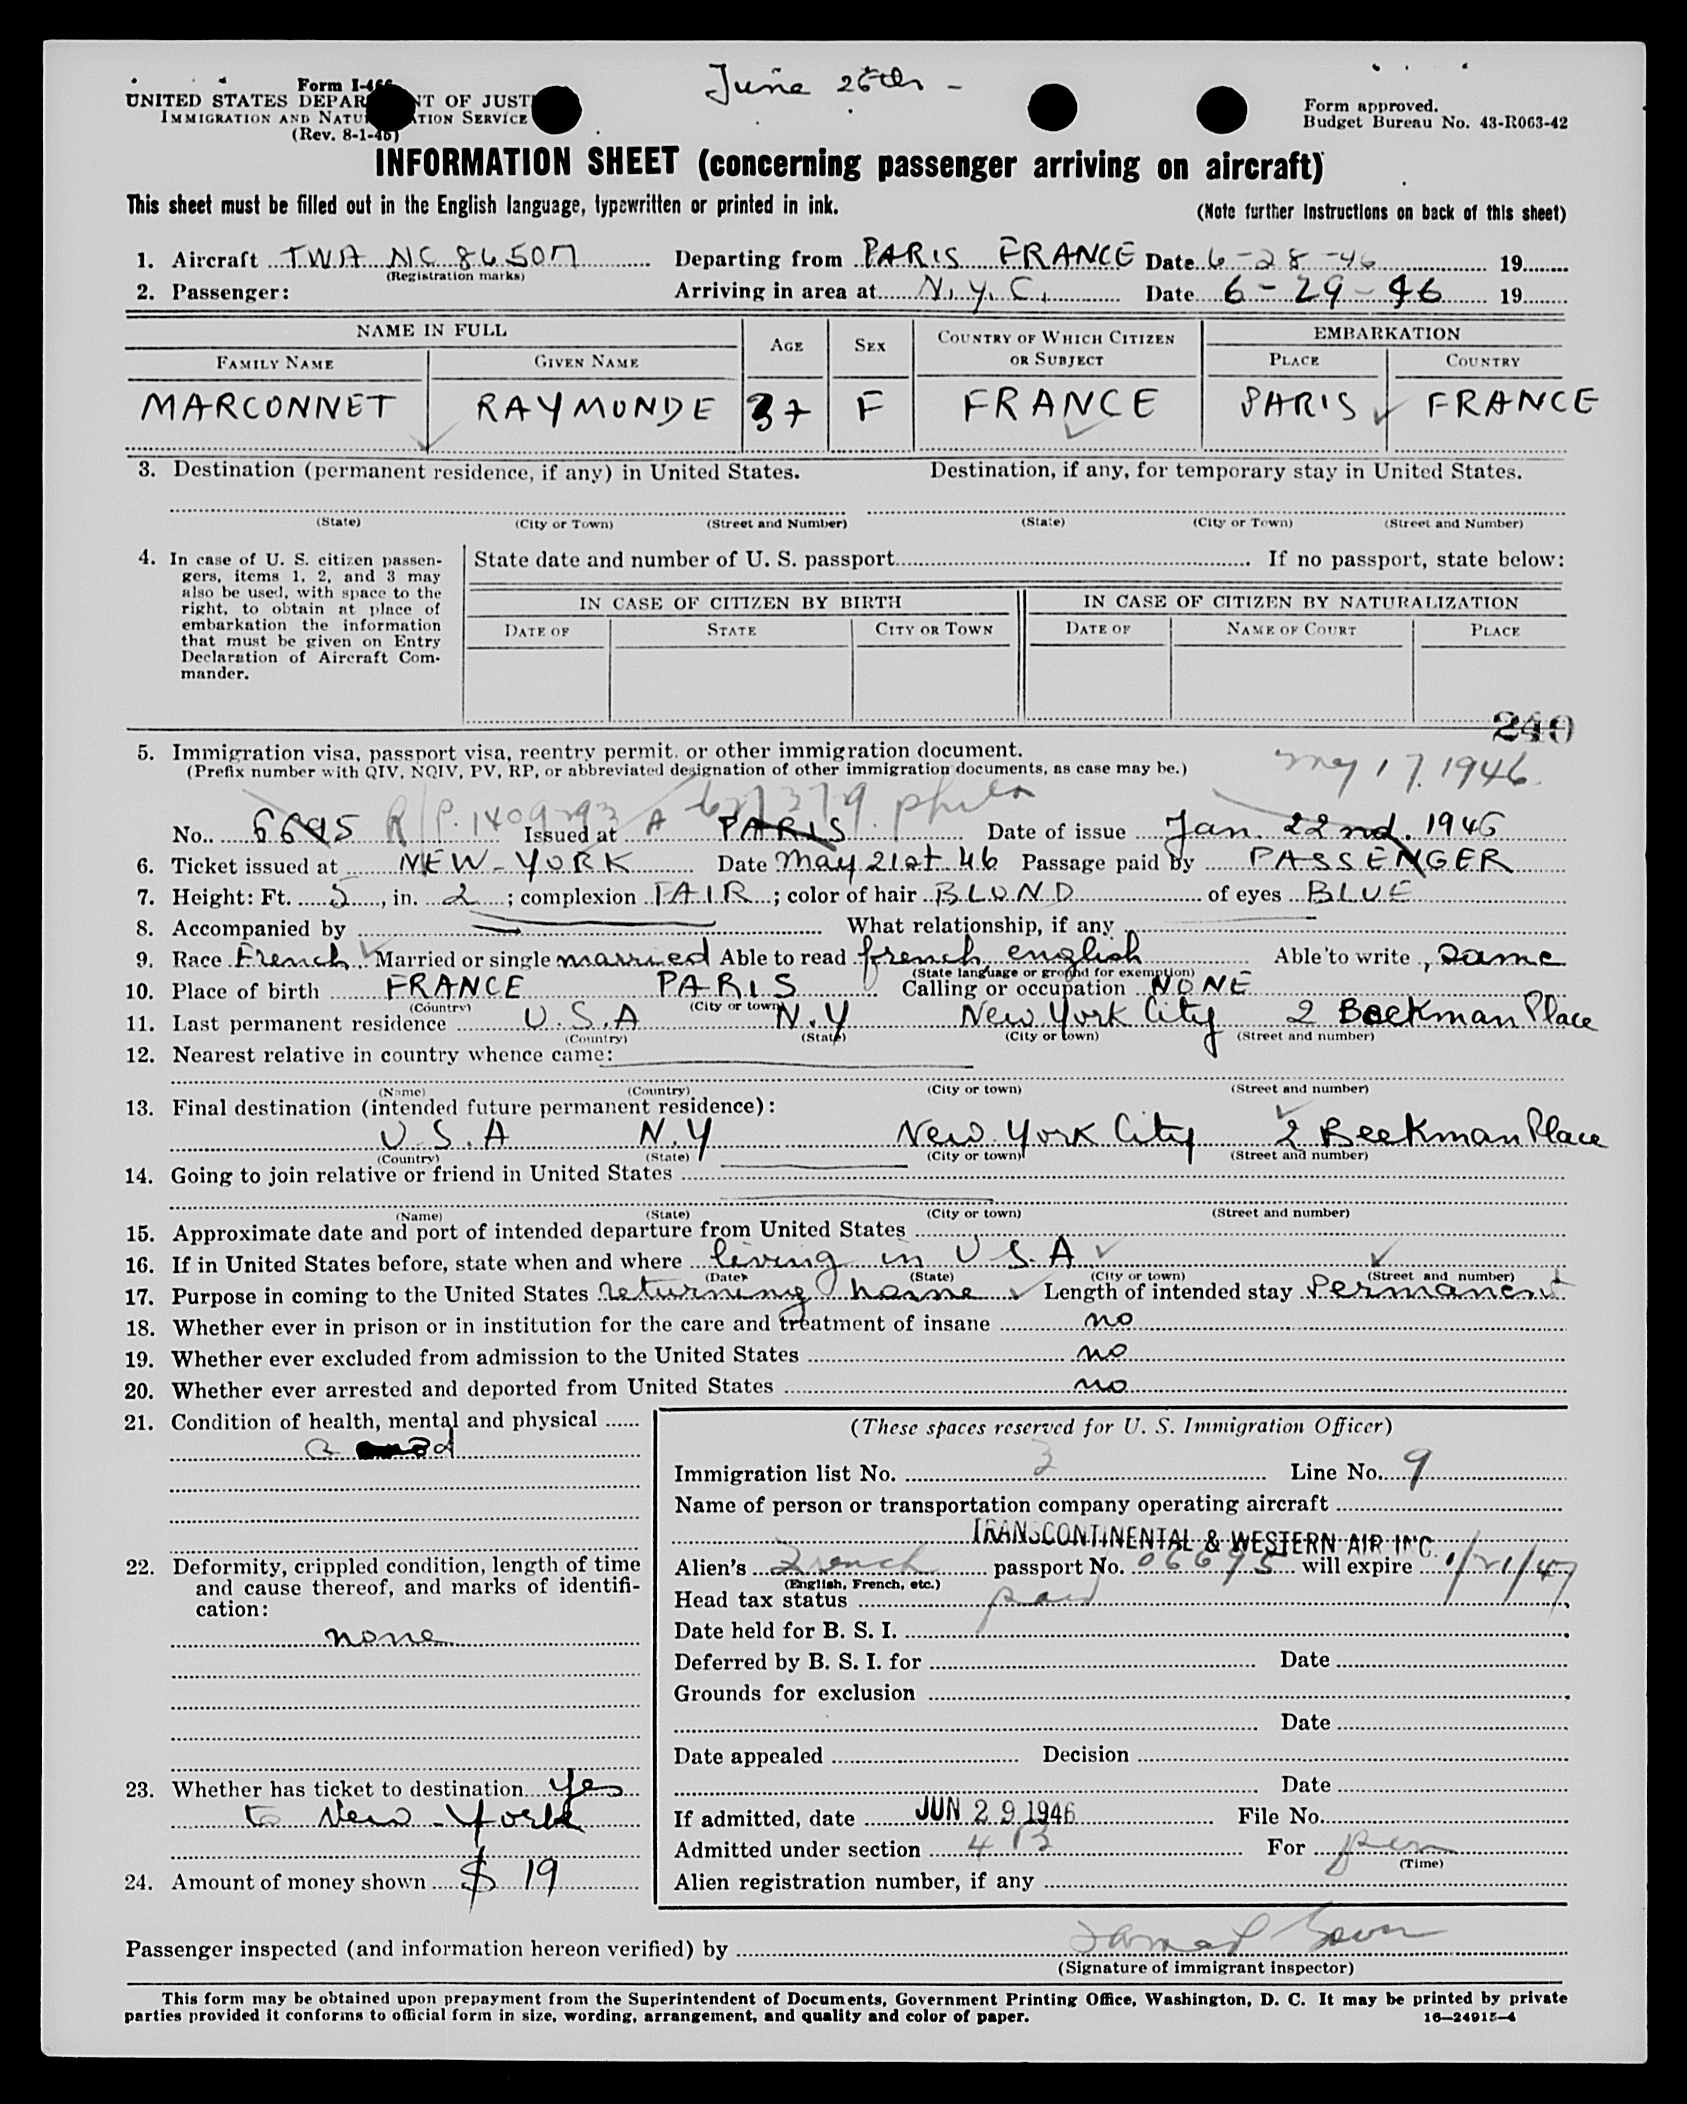 June 26th -
Form I-466
UNITED STATES DEPARTMENT OF JUSTICE
IMMIGRATION AND NATURALIZATION SERVICE
(Rev. 8-1-45)
Form approved.
Budget Bureau No. 43-R063-42
INFORMATION SHEET (concerning passenger arriving on aircraft)
This sheet must be filled out in the English language, typewritten or printed in ink.
(Note further instructions on back of this sheet)
1. Aircraft TWA NC 86507 Departing from PARIS FRANCE Date 6-28-46 19
(Registration marks)
2. Passenger: Arriving in area at N.Y.C. Date 6-29-46 19
NAME IN FULL AGE SEX COUNTRY OF WHICH CITIZEN OR SUBJECT EMBARKATION
FAMILY NAME GIVEN NAME PLACE COUNTRY
MARCONNET RAYMONDE 37 F FRANCE PARIS FRANCE
3. Destination (permanent residence, if any) in United States. Destination, if any, for temporary stay in United States.
(State) (City or Town) (Street and Number) (State) (City or Town) (Street and Number)
4. In case of U. S. citizen passen-
gers, items 1, 2, and 3 may
also be used, with space to the
right, to obtain at place of
embarkation the information
that must be given on Entry
Declaration of Aircraft Com-
mander.
State date and number of U. S. passport If no passport, state below:
IN CASE OF CITIZEN BY BIRTH IN CASE OF CITIZEN BY NATURALIZATION
DATE OF STATE CITY OR TOWN DATE OF NAME OF COURT PLACE
240
5. Immigration visa, passport visa, reentry permit, or other immigration document.
(Prefix number with QIV, NQIV, PV, RP, or abbreviated designation of other immigration documents, as case may be.)
May 17. 1946
R/P. 1409293 A phila
No. 6695 Issued at PARIS Date of issue Jan. 22nd. 1946
6. Ticket issued at NEW-YORK Date May 21st 46 Passage paid by PASSENGER
7. Height: Ft. 5, in. 2; complexion FAIR; color of hair BLOND of eyes BLUE
8. Accompanied by What relationship, if any
9. Race French Married or single married Able to read french english Able to write, same
(State language or ground for exemption)
10. Place of birth FRANCE PARIS Calling or occupation NONE
(Country) (City or town)
11. Last permanent residence U.S.A N.Y New York City 2 Beekman Place
(Country) (State) (City or town) (Street and number)
12. Nearest relative in country whence came:
(Name) (Country) (City or town) (Street and number)
13. Final destination (intended future permanent residence):
U.S.A N.Y New York City 2 Beekman Place
(Country) (State) (City or town) (Street and number)
14. Going to join relative or friend in United States
(Name) (State) (City or town) (Street and number)
15. Approximate date and port of intended departure from United States
16. If in United States before, state when and where living in U.S.A
(Date) (State) (City or town) (Street and number)
17. Purpose in coming to the United States returning home Length of intended stay Permanent
18. Whether ever in prison or in institution for the care and treatment of insane no
19. Whether ever excluded from admission to the United States no
20. Whether ever arrested and deported from United States no
21. Condition of health, mental and physical
22. Deformity, crippled condition, length of time
and cause thereof, and marks of identifi-
cation:
none
23. Whether has ticket to destination yes
to New-York
24. Amount of money shown $ 19
(These spaces reserved for U. S. Immigration Officer)
Immigration list No. 3 Line No. 9
Name of person or transportation company operating aircraft
TRANSCONTINENTAL & WESTERN AIR INC.
Alien's French passport No. 06695 will expire 1/21/47
(English, French, etc.)
Head tax status paid
Date held for B. S. I.
Deferred by B. S. I. for Date
Grounds for exclusion
Date
Date appealed Decision
Date
If admitted, date JUN 29 1946 File No.
Admitted under section 4 B For perm
(Time)
Alien registration number, if any
Passenger inspected (and information hereon verified) by
(Signature of immigrant inspector)
This form may be obtained upon prepayment from the Superintendent of Documents, Government Printing Office, Washington, D. C. It may be printed by private
parties provided it conforms to official form in size, wording, arrangement, and quality and color of paper.
16—24915-4